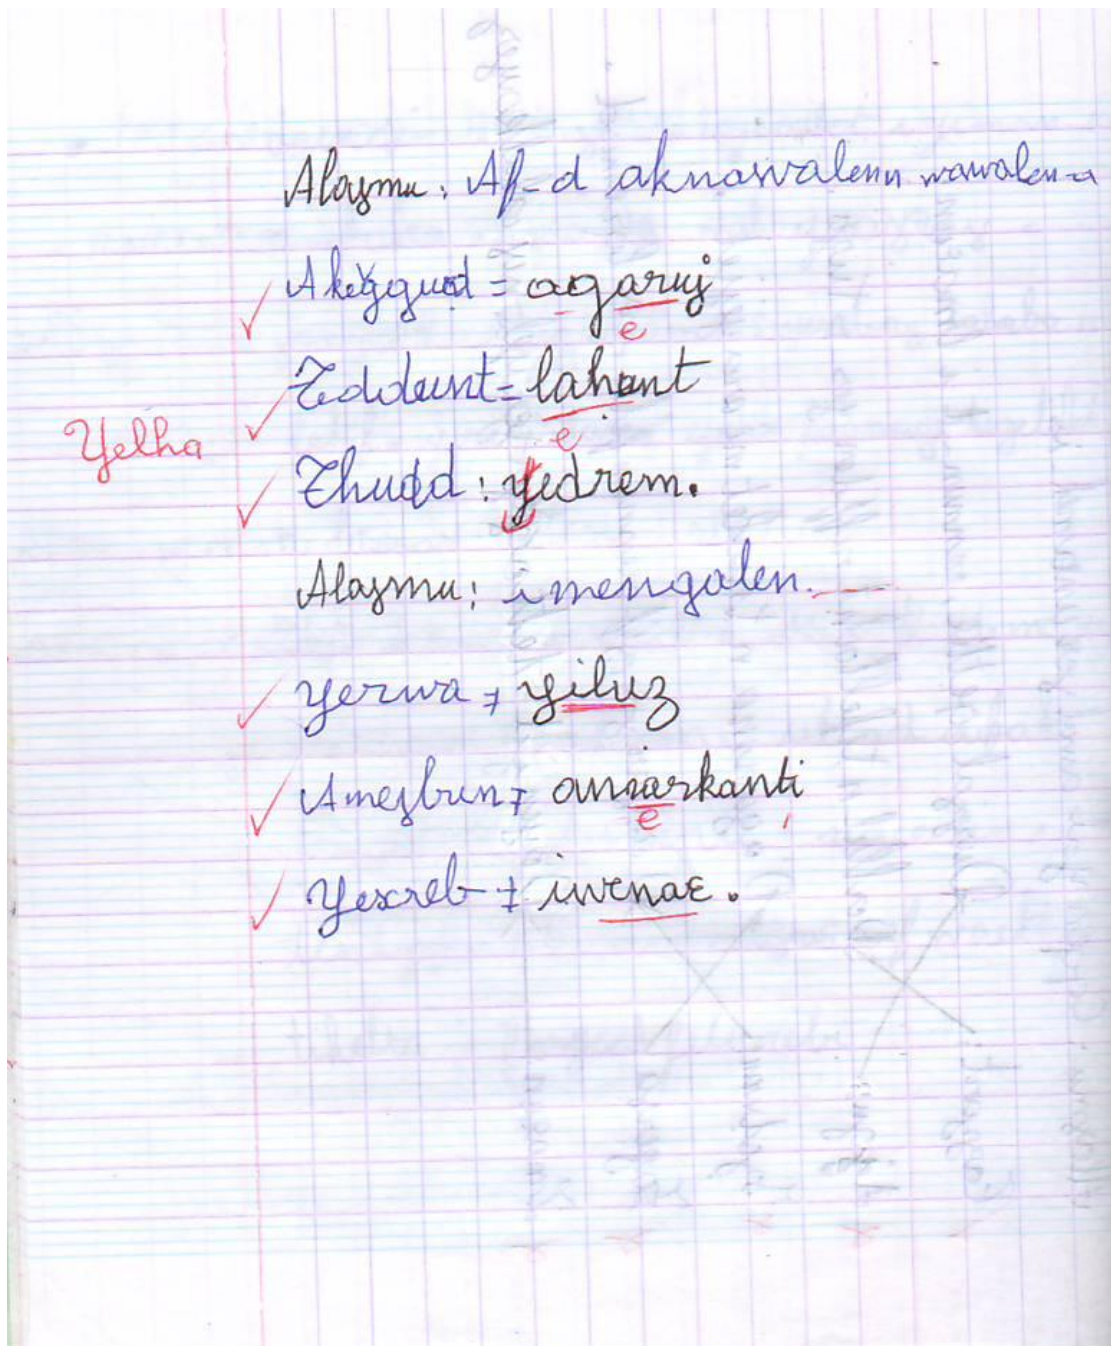 Alaɣmu : Af-d aknawalenn wawalen-a
Akeɣɣud = agaruj
e
Teddunt = lahunt
e
Yelha
Thudd : yedrem.
Alaɣmu : imengalen.
yerwa ≠ yiluz
Ameɣbun ≠ amarkanti
e
Yexreb ≠ iwenaɛ.